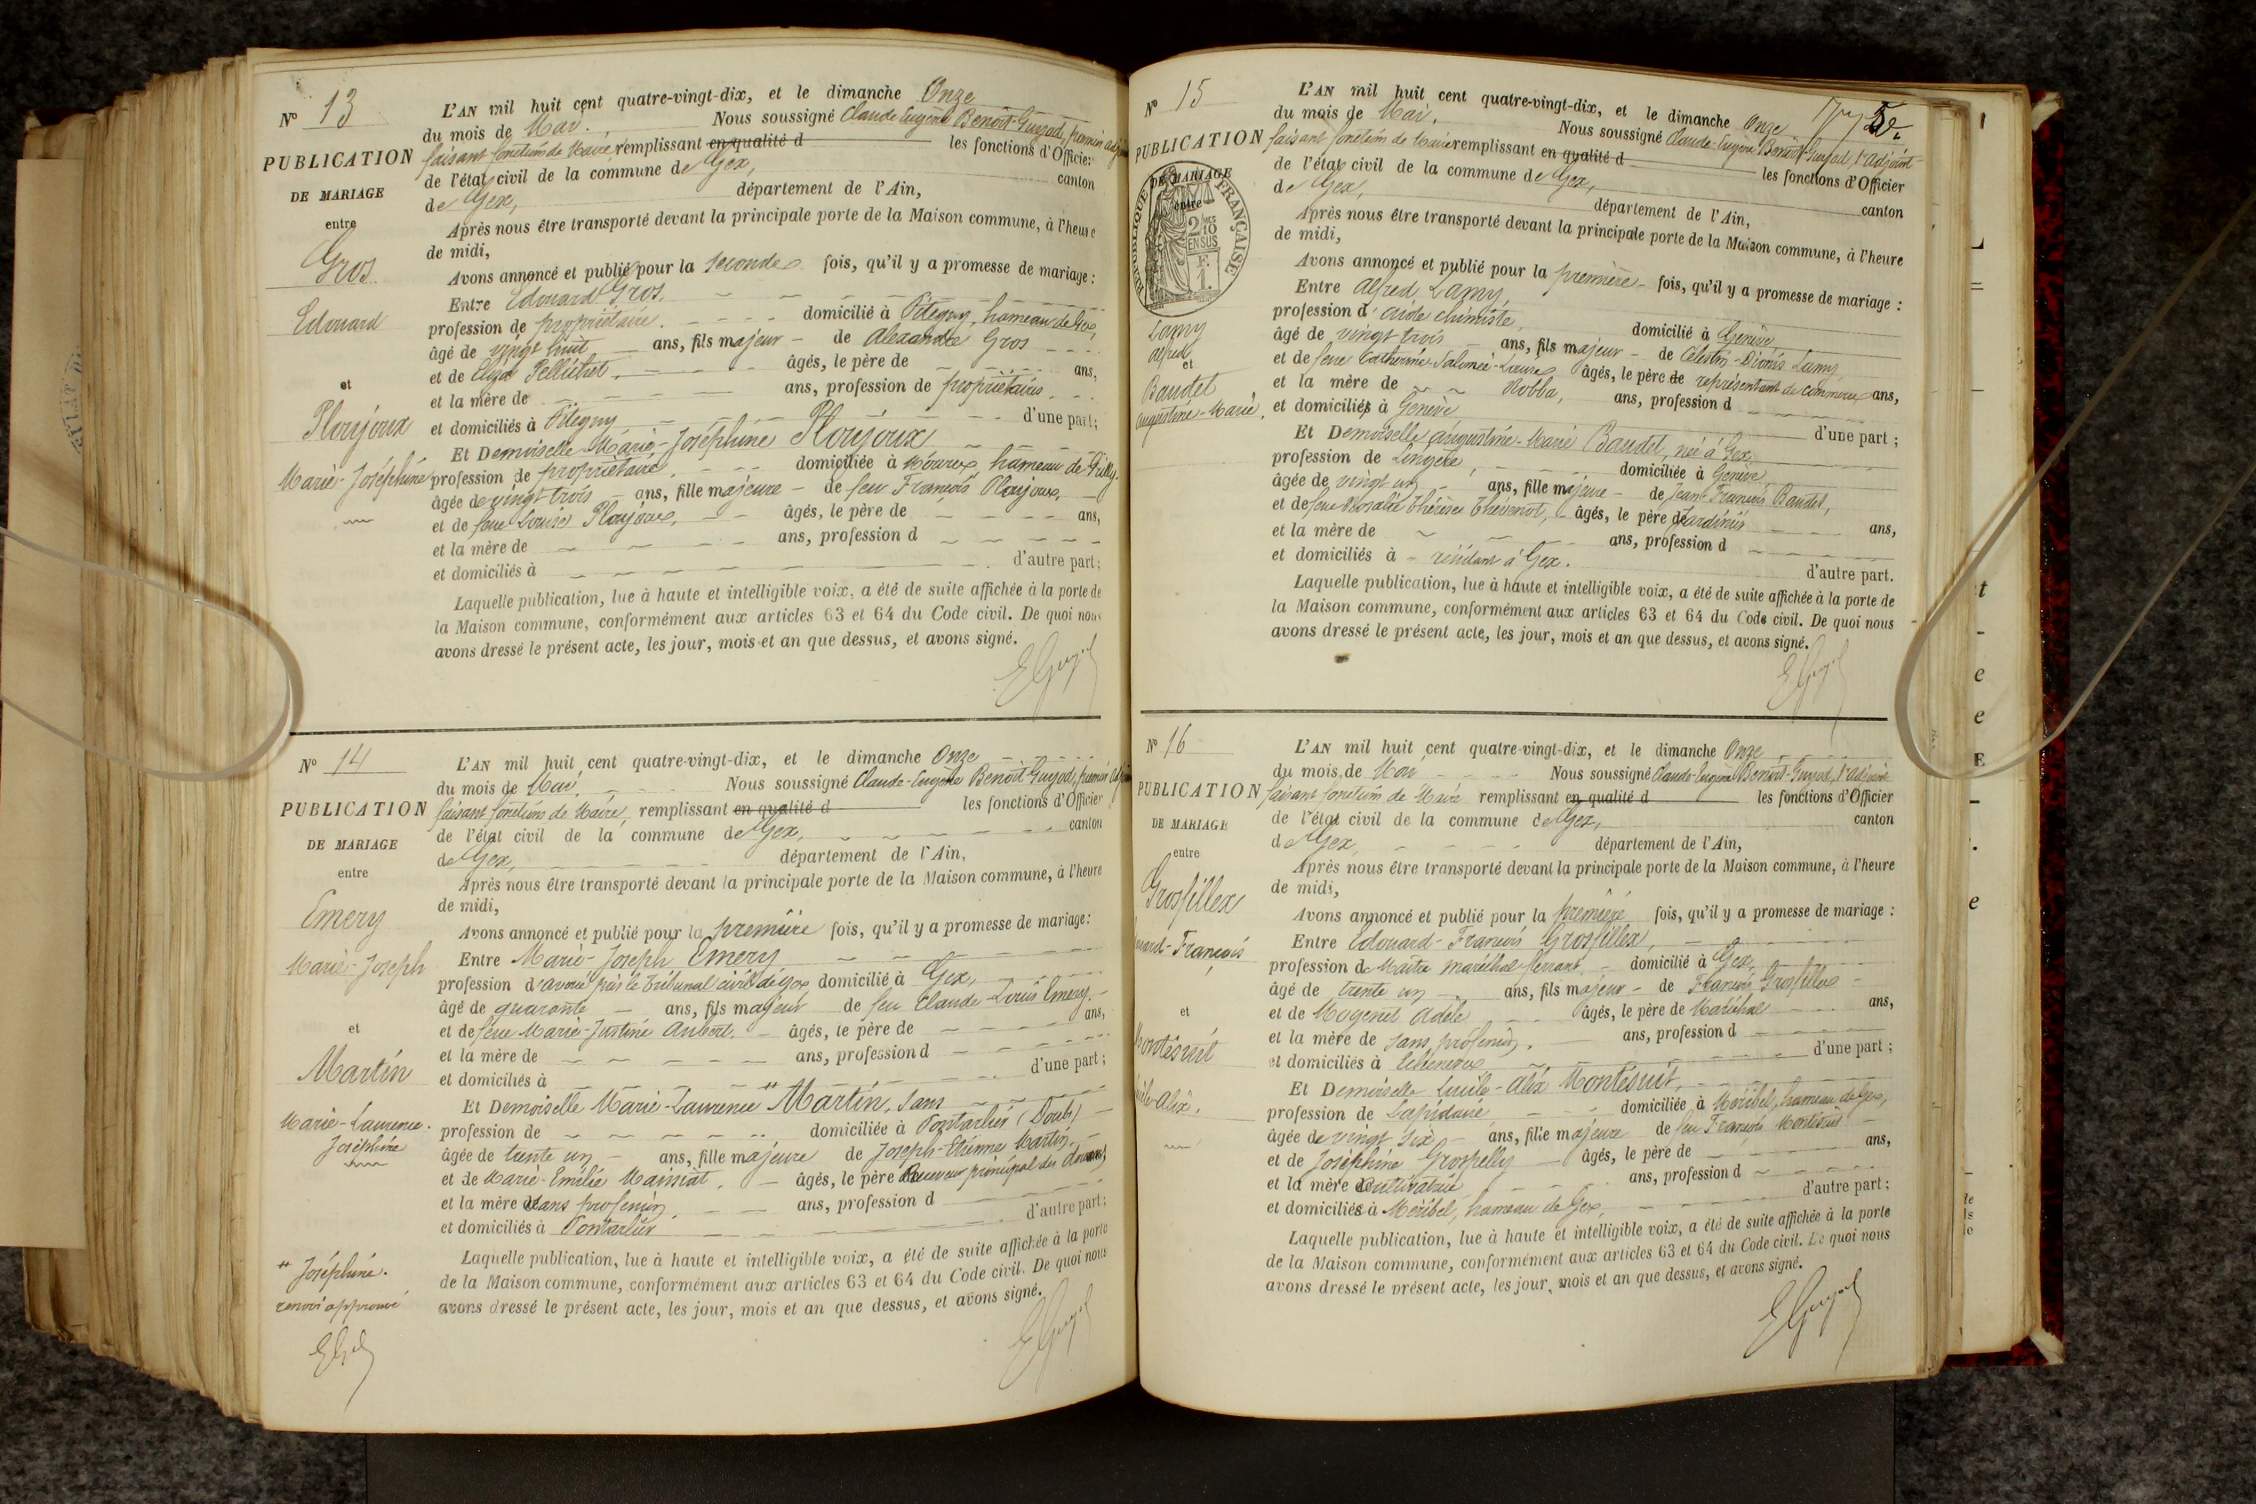 N° 13
PUBLICATION
DE MARIAGE
entre
Gros
Edouard
et
Ploujoux
Marie-Joséphine
L'AN mil huit cent quatre-vingt-dix, et le dimanche Onze
du mois de Mai. Nous soussigné Claude Eugène Benoit-Guyod, premier adjoint
faisant fonctions de Maire, remplissant en qualité d les fonctions d'Officier
de l'état civil de la commune de Gex, canton
de Gex, département de l'Ain,
Après nous être transporté devant la principale porte de la Maison commune, à l'heure
de midi,
Avons annoncé et publié pour la seconde fois, qu'il y a promesse de mariage :
Entre Edouard Gros.
profession de propriétaire. domicilié à Pitegny, hameau de Gex,
âgé de vingt huit ans, fils majeur de Alexandre Gros
et de Elisa Pelletret. âgés, le père de ans,
et la mère de ans, profession de propriétaires.
et domiciliés à Pitegny d'une part;
Et Demoiselle Marie-Joséphine Ploujoux
profession de propriétaire. domiciliée à Mourex, hameau de Grilly.
âgée de vingt trois ans, fille majeure de feu François Ploujoux,
et de feue Louise Ploujoux, âgés, le père de ans,
et la mère de ans, profession d
et domiciliés à d'autre part;
Laquelle publication, lue à haute et intelligible voix, a été de suite affichée à la porte de
la Maison commune, conformément aux articles 63 et 64 du Code civil. De quoi nous
avons dressé le présent acte, les jour, mois et an que dessus, et avons signé.
E Guyod
N° 14
PUBLICATION
DE MARIAGE
entre
Emery
Marie-Joseph
et
Martin
Marie-Laurence.
Joséphine
# Joséphine.
renvoi approuvé
L'AN mil huit cent quatre-vingt-dix, et le dimanche Onze
du mois de Mai. Nous soussigné Claude-Eugène Benoit-Guyod, premier adjoint
faisant fonctions de Maire, remplissant en qualité d les fonctions d'Officier
de l'état civil de la commune de Gex, canton
de Gex, département de l'Ain,
Après nous être transporté devant la principale porte de la Maison commune, à l'heure
de midi,
Avons annoncé et publié pour la première fois, qu'il y a promesse de mariage:
Entre Marie-Joseph Emery
profession d'avoué près le tribunal civil de Gex, domicilié à Gex,
âgé de quarante ans, fils majeur de feu Claude-Louis Emery.
et de feue Marie-Justine Aubert. âgés, le père de ans,
et la mère de ans, profession d
et domiciliés à d'une part;
Et Demoiselle Marie-Laurence # Martin, sans
profession de domiciliée à Pontarlier (Doubs)
âgée de trente un ans, fille majeure de Joseph-Etienne Martin,
et de Marie-Emélie Maissiat. âgés, le père Receveur principal des douanes
et la mère sans profession. ans, profession d
et domiciliés à Pontarlier d'autre part;
Laquelle publication, lue à haute et intelligible voix, a été de suite affichée à la porte
de la Maison commune, conformément aux articles 63 et 64 du Code civil. De quoi nous
avons dressé le présent acte, les jour, mois et an que dessus, et avons signé.
E Guyod
N° 15
PUBLICATION
DE MARIAGE
entre
RÉPUBLIQUE FRANÇAISE
2/10
EN SUS
F.
1.
Lamy
Alfred
et
Baudet
Augustine-Marie.
L'AN mil huit cent quatre-vingt-dix, et le dimanche Onze
du mois de Mai. Nous soussigné Claude-Eugène Benoit-Guyod 1er adjoint
faisant fonctions de Maire remplissant en qualité d les fonctions d'Officier
de l'état civil de la commune de Gex, canton
de Gex, département de l'Ain,
Après nous être transporté devant la principale porte de la Maison commune, à l'heure
de midi,
Avons annoncé et publié pour la première fois, qu'il y a promesse de mariage :
Entre Alfred Lamy,
profession d'aide chimiste, domicilié à Genève,
âgé de vingt trois ans, fils majeur de Célestin-Dionis Lamy
et de feue Catherine-Salomée-Louise âgés, le père de représentant de commerce ans,
et la mère de Robba, ans, profession d
et domiciliés à Genève d'une part ;
Et Demoiselle Augustine-Marie Baudet, née à Gex,
profession de Lingère, domiciliée à Genève,
âgée de vingt un ans, fille majeure de Jean-François Baudet,
et de feue Rosalie Thérèse Thévenot, âgés, le père de Jardinier ans,
et la mère de ans, profession d
et domiciliés à résidant à Gex. d'autre part.
Laquelle publication, lue à haute et intelligible voix, a été de suite affichée à la porte de
la Maison commune, conformément aux articles 63 et 64 du Code civil. De quoi nous
avons dressé le présent acte, les jour, mois et an que dessus, et avons signé.
E Guyod
N° 16
PUBLICATION
DE MARIAGE
entre
Grosfillex
François
et
Montésuit
Alix.
L'AN mil huit cent quatre-vingt-dix, et le dimanche Onze
du mois de Mai Nous soussigné Claude-Eugène Benoit-Guyod, 1er adjoint
faisant fonctions de Maire remplissant en qualité d les fonctions d'Officier
de l'état civil de la commune de Gex, canton
de Gex, département de l'Ain,
Après nous être transporté devant la principale porte de la Maison commune, à l'heure
de midi,
Avons annoncé et publié pour la première fois, qu'il y a promesse de mariage :
Entre Edouard-François Grosfillex,
profession de Maître maréchal ferrant, domicilié à Gex,
âgé de trente un ans, fils majeur de François Grosfillex
et de Mogenet Adèle âgés, le père de Maréchal ans,
et la mère de sans profession, ans, profession d
et domiciliés à Echenevex d'une part ;
Et Demoiselle Lucile-Alix Montésuit,
profession de Lapidaire domiciliée à Méribel, hameau de Gex,
âgée de vingt six ans, fille majeure de feu François Montésuit
et de Joséphine Grospelly âgés, le père de ans,
et la mère cultivatrice ans, profession d
et domiciliés à Méribel, hameau de Gex, d'autre part ;
Laquelle publication, lue à haute et intelligible voix, a été de suite affichée à la porte
de la Maison commune, conformément aux articles 63 et 64 du Code civil. De quoi nous
avons dressé le présent acte, les jour, mois et an que dessus, et avons signé.
E Guyod